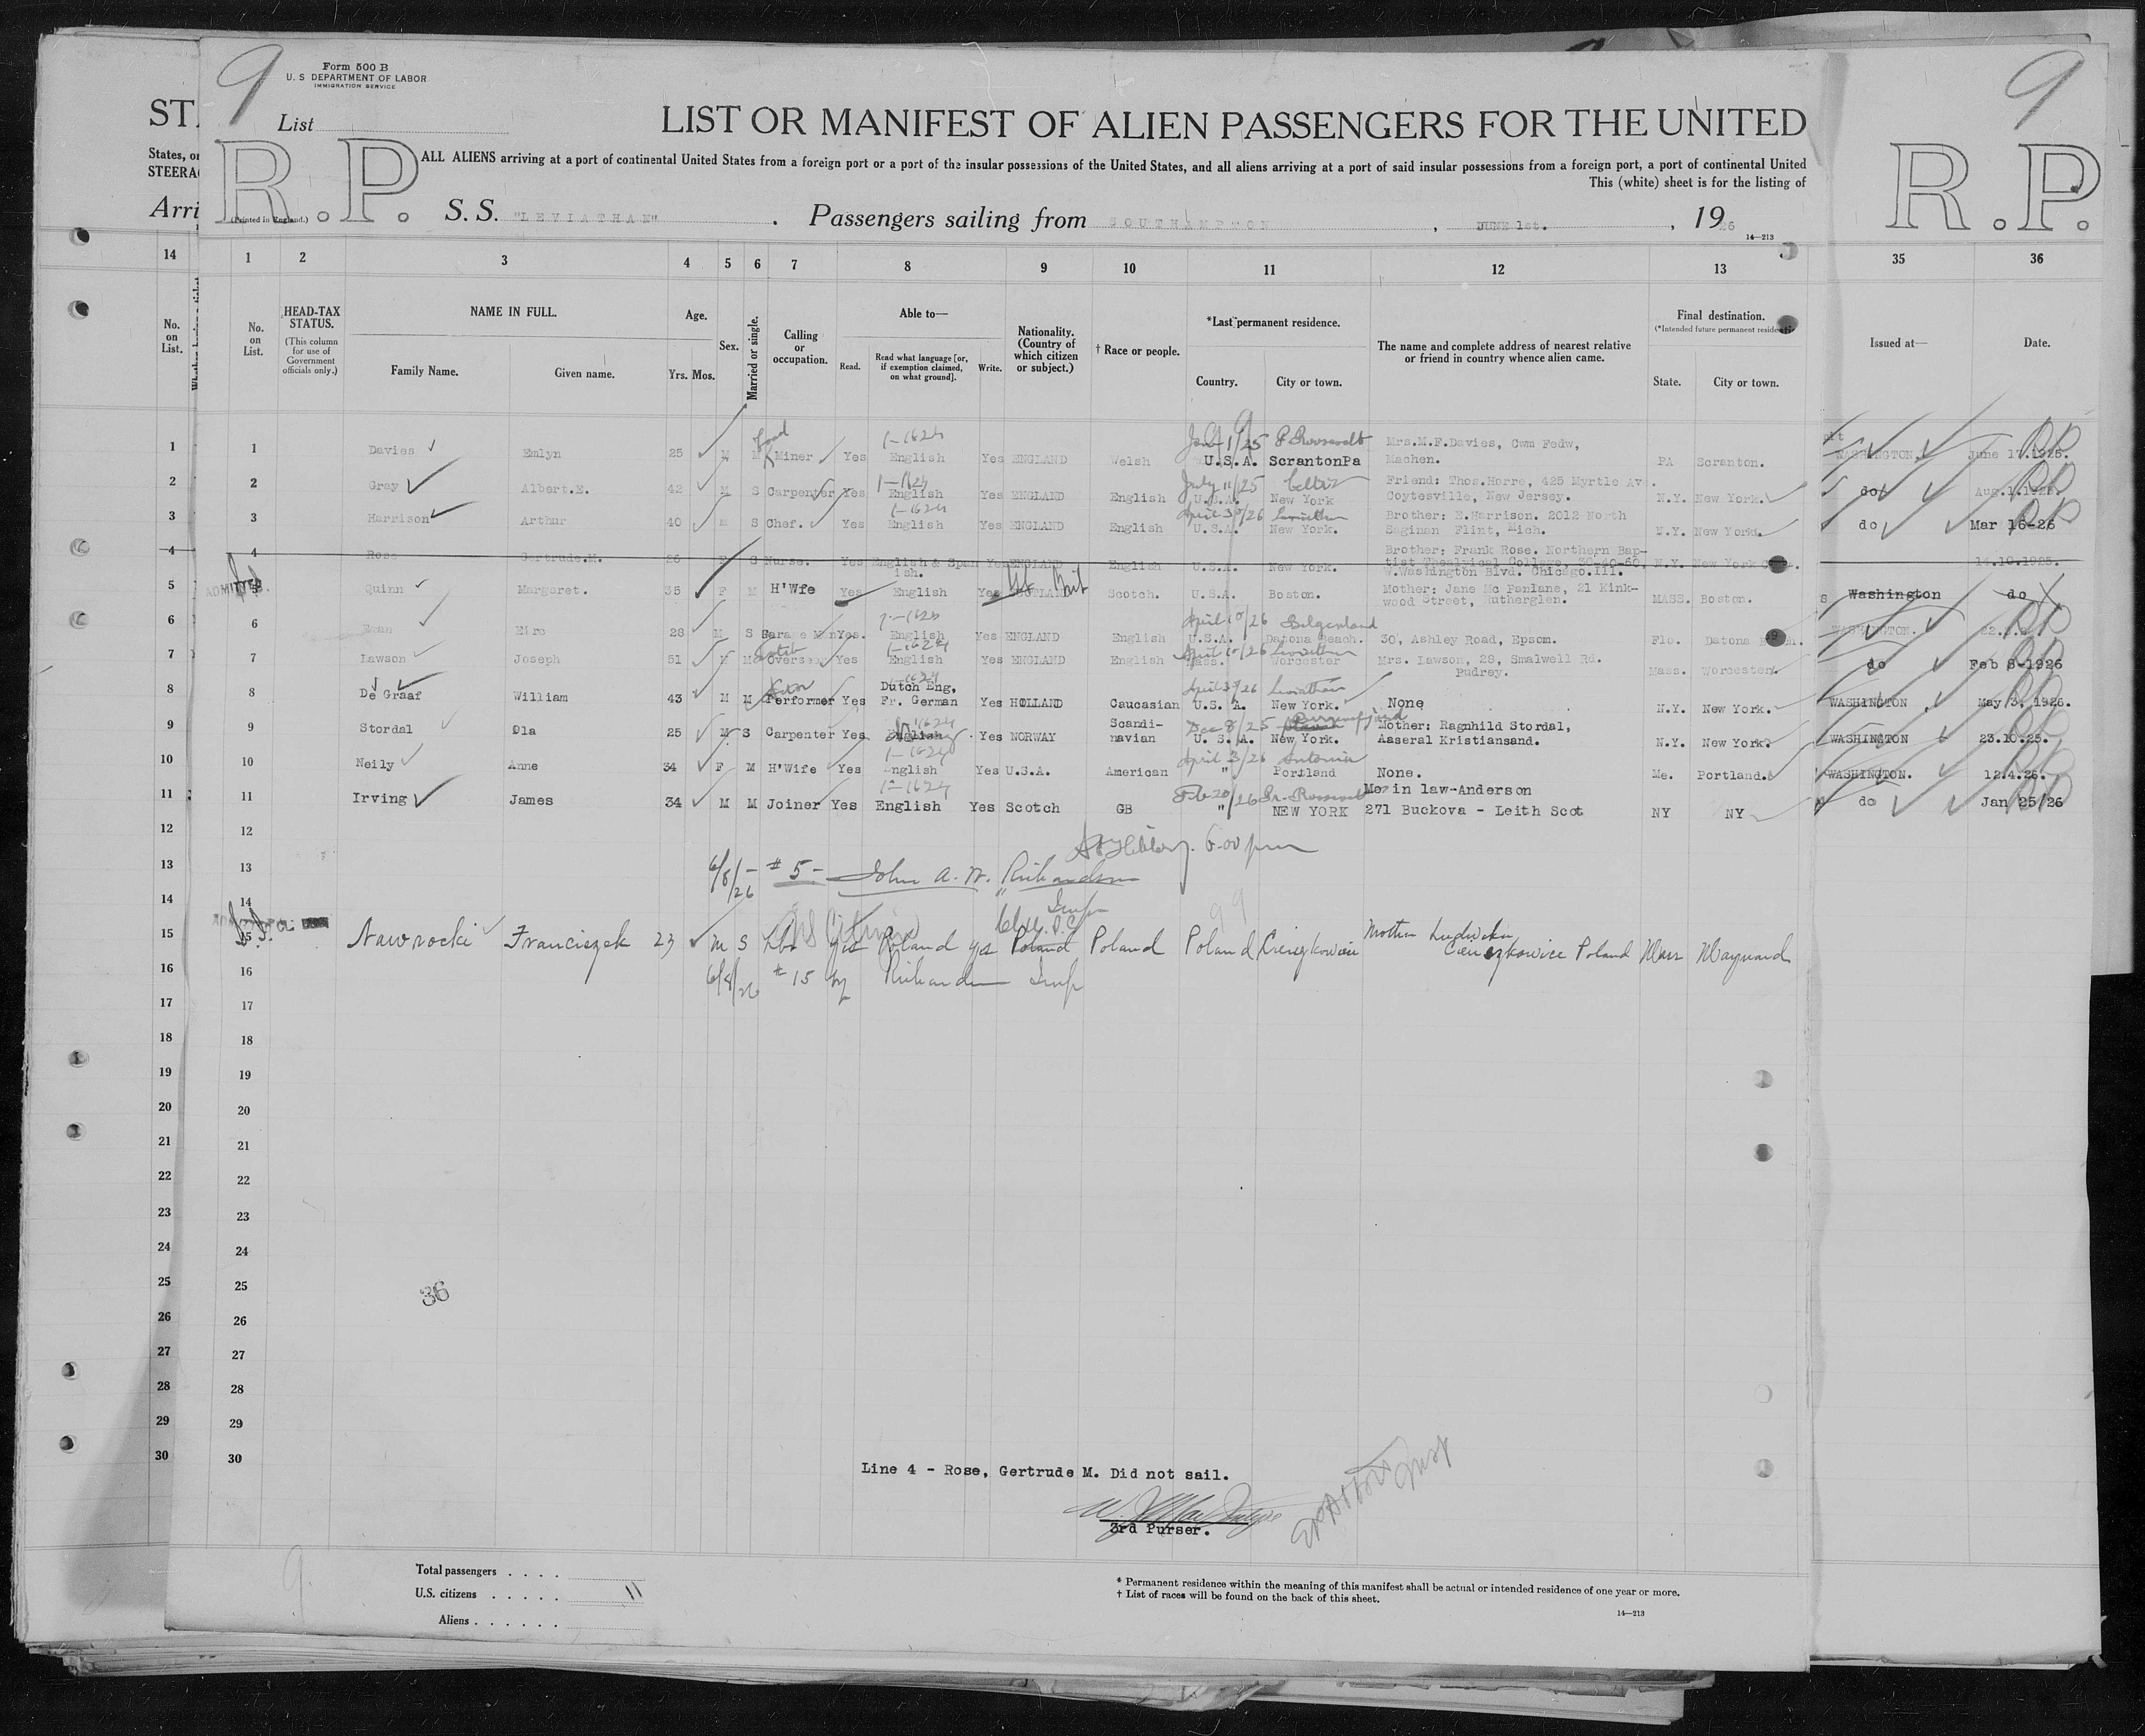 9
Form 500 B
U. S DEPARTMENT OF LABOR
IMMIGRATION SERVICE
9
ST
List
LIST OR MANIFEST OF ALIEN PASSENGERS FOR THE UNITED
R.P.
R.P.
States, or
STEERA
ALL ALIENS arriving at a port of continental United States from a foreign port or a port of the insular possessions of the United States, and all aliens arriving at a port of said insular possessions from a foreign port, a port of continental United
This (white) sheet is for the listing of
Arri
(Printed in England.)
S. S. "LEVIATHAN". Passengers sailing from SOUTHAMPTON, JUNE 1st., 1926
14—213
14 1 2 3 4 5 6 7 8 9 10 11 12 13 35 36
No. on List.
No. on List.
HEAD-TAX STATUS.
(This column for use of Government officials only.)
NAME IN FULL.
Family Name. Given name.
Age.
Yrs. Mos.
Sex.
Married or single.
Calling or occupation.
Able to—
Read.
Read what language [or, if exemption claimed, on what ground].
Write.
Nationality. (Country of which citizen or subject.)
† Race or people.
*Last permanent residence.
Country. City or town.
The name and complete address of nearest relative or friend in country whence alien came.
Final destination.
(*Intended future permanent reside
State. City or town.
Issued at—
Date.
1-1624 P. Roosevelt Mrs.M.F.Davies, Cwm Fedw,
1 1 Davies Emlyn 25 M M Miner Yes English Yes ENGLAND Welsh U.S.A. ScrantonPa Machen. PA Scranton. WASHINGTON. June 17.1925.
1-1624 July 11/25 Celtic Friend: Thos.Horre, 425 Myrtle Av.
2 2 Gray Albert.E. 42 M S Carpenter Yes English Yes ENGLAND English U.S.A. New York Coytesville, New Jersey. N.Y. New York. do
1-1624 April 30/26 Leviathan Brother: E.Harrison. 2012 North
3 3 Harrison Arthur 40 m S Chef. Yes English Yes ENGLAND English U.S.A. New York. Saginan Flint, Mich. N.Y. New York. do Mar 16-26
Brother: Frank Rose. Northern Bap-
4 4 Rose Gertrude.M. 26 F S Nurse. Yes English & Spanish. Yes ENGLAND English U.S.A. New York. tist Thealvical Collage, 30-40-60, W.Washington Blvd. Chicago.Ill. N.Y. New York 14.10.1925.
ADMITTED
5 5 Quinn Margaret. 35 F M H'Wfe Yes English Yes SCOTLAND Scotch. U.S.A. Boston. Mother: Jane Mc Panlane, 21 Kink-
wood Street, Rutherglen. MASS. Boston. Washington do
1-1624 April 10/26 Belgenland
6 6 Eirc 28 M S Garage Man Yes. English Yes ENGLAND English U.S.A. Datona Beach. 30, Ashley Road, Epsom. Flo. Datona WASHINGTON.
1-1624 April 10/26 Leviathan
7 7 Lawson Joseph 51 M M Overseer Yes English Yes ENGLAND English Mass. Worcester Mrs. Lawson, 28, Smalwell Rd.
Pudrey. Mass. Worcester. do Feb 8-1926
1-1624 Actor Dutch Eng, Leviathan
8 8 De Graaf William 43 M M Performer Yes Fr. German Yes HOLLAND Caucasian U.S. A. New York. None N.Y. New York. WASHINGTON May 3. 1926.
1624 Scandi- Dec 8/25 Mother: Ragnhild Stordal,
9 9 Stordal Ola 25 M S Carpenter Yes English Yes NORWAY navian U. S. A. New York. Aaseral Kristiansand. N.Y. New York. WASHINGTON 23.10.25.
1-1624 April 3/26 Antonia
10 10 Neily Anne 34 F M H'Wife Yes English Yes U.S.A. American " Portland None. Me. Portland. WASHINGTON. 12.4.26.
1-1624 Feb 20/26 Pr. Roosevelt Mo in law-Anderson
11 11 Irving James 34 M M Joiner Yes English Yes Scotch GB " NEW YORK 271 Buckova - Leith Scot NY NY do Jan 25/26
12 12
6.00 pm
13 13 6/8/26 - #5 - John A. W. Richardson
Insp
14 14
15 15 Nawrocki Franciszek 23 m S Lbr yes Poland yes Poland Poland Poland Mother Ludwika
Poland Mass Maynard
US Citizen
16 16 6/8/26 #15 by Richardson Insp
17 17
18 18
19 19
20 20
21 21
22 22
23 23
24 24
25 25
36
26 26
27 27
28 28
29 29
30 30
Line 4 - Rose, Gertrude M. Did not sail.
3rd Purser.
9
Total passengers . . . .
U.S. citizens . . . . . 11
Aliens . . . . . .
* Permanent residence within the meaning of this manifest shall be actual or intended residence of one year or more.
† List of races will be found on the back of this sheet.
14—213